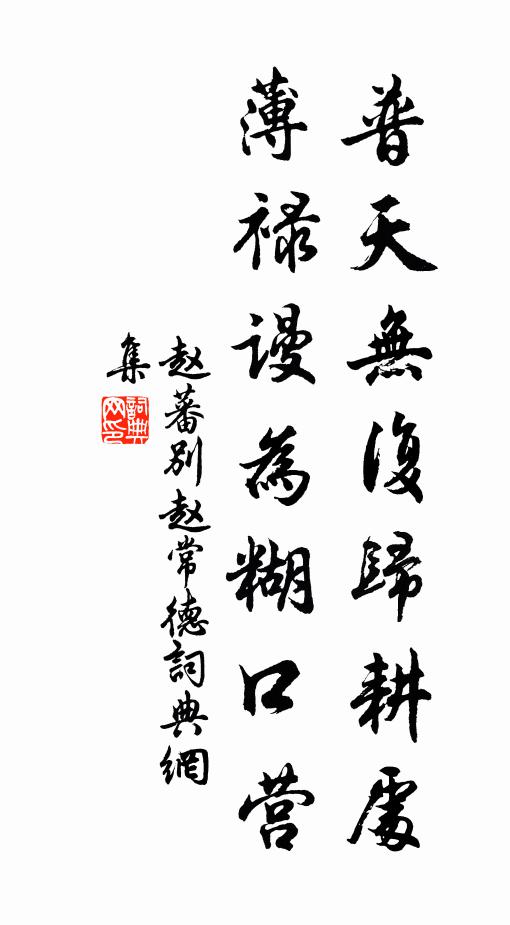 普天無復歸耕處
薄禄謾為糊口营
赵蕃別赵常德詞典網
集
詞典网印